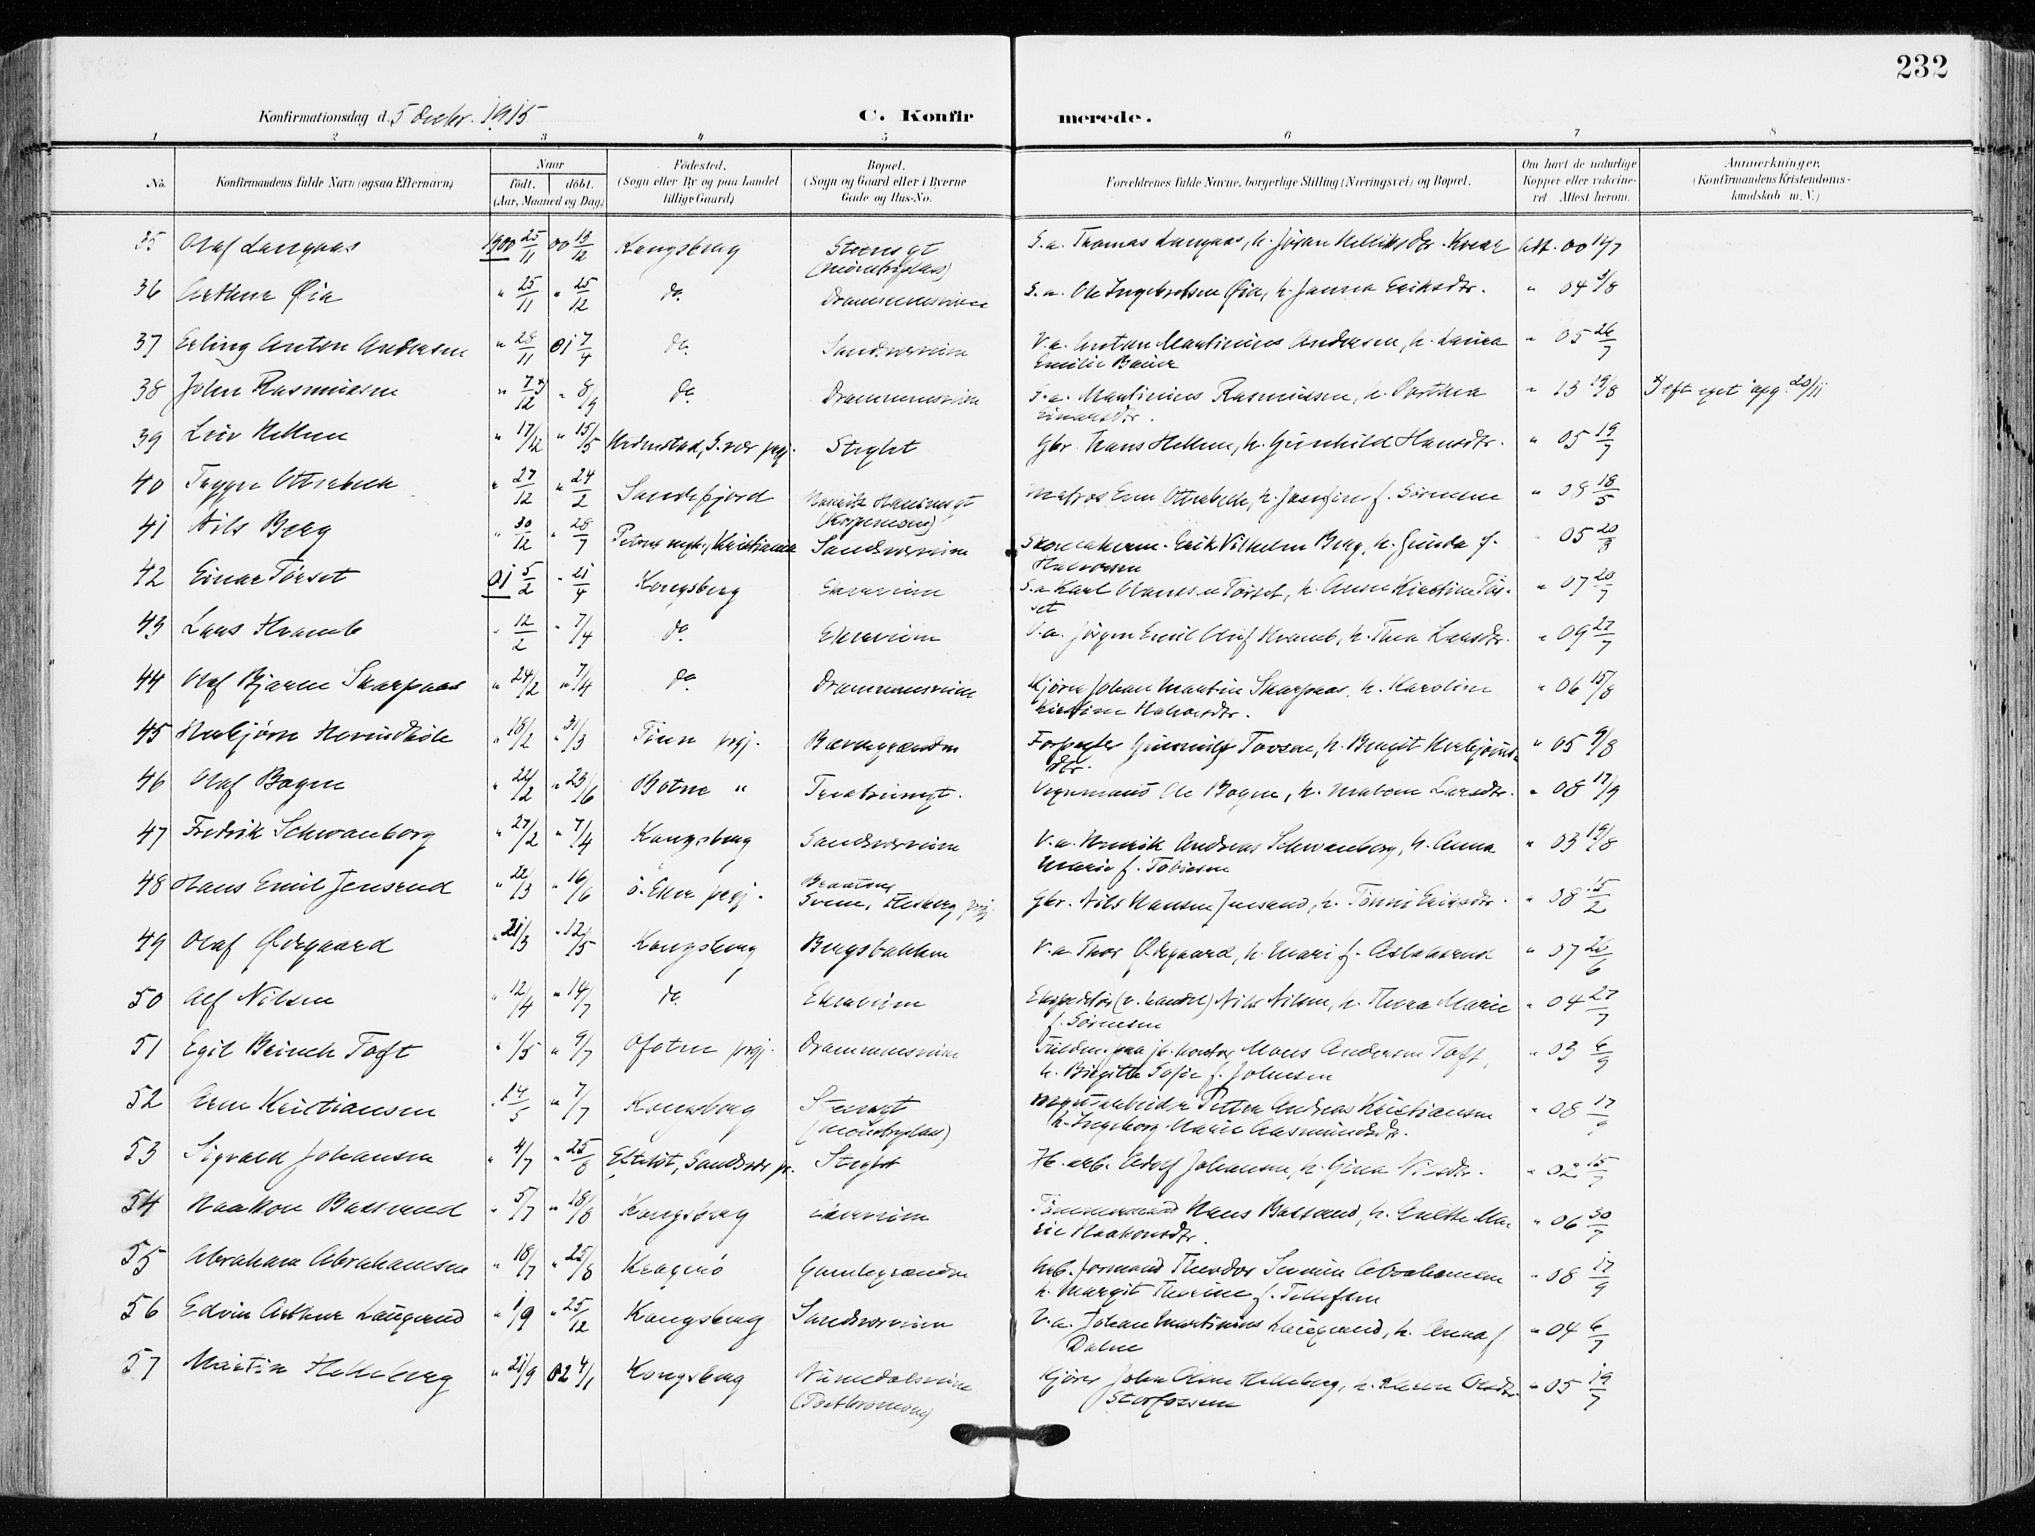 232
Konfirmationsdag d. 5 decbr. 1915
C. Konfirmerede.
1 2 3 4 5 6 7 8
No. Konfirmandens fulde Navn (ogsaa Efternavn) Naar født. døbt. (Aar, Maaned og Dag) Fødested. (Sogn eller By og paa Landet tillige Gaard) Bopæl. (Sogn og Gaard eller i Byerne Gade og Hus-No. Forældrenes fulde Navne, borgerlige Stilling (Næringsvei) og Bopæl. Om havt de naturlige Kopper eller vakcineret. Attest herom. Anmerkninger. (Konfirmandens Kristendomskundskab m. V.)
35 Olaf Langaas 1900 25/11 00 13/12 Kongsberg Steensgt (Mønsterplass) G.a. Thomas Langaas, h. Jøran Kittilsdtr. Att. 00
36 Arthur Øia " 25/11 " 25/12 do. Drammensveien G.a. Ole Ingebretsen Øia, h. Janna Eriksdtr. " 04 3/8
37 Erling Anton Andersen " 28/11 01 7/4 do. Sandsværveien V.a. Anton Martinius Andersen, h. Laura " 05 26/7
Emilie Bauer
38 John Rasmussen " 7/12 x) " 8/9 do. Drammensveien G.a. Martinius Rasmussen, h. Dorthea " 13 19/8 x) eft. eget opg. 20/11
Einarsdtr.
39 Leiv Hellum " 17/12 " 15/5 Hedenstad, S.vær prgj. Steglet Gbr. Hans Hellum, h. Gunhild Hansdtr. " 05 19/7
40 Trygve Otterbech " 27/12 " 24/2 Sandefjord Henrik Hansens gt Matros Ener Otterbech, h. Josefine f. Sørensen " 08 18/5
41 Nils Berg " 30/12 " 28/7 Petrus mgh., Kristiania Sandsværveien Skomakerm. Erik Vilhelm Berg, h. Gunda f. " 05 20/8
Halvorsen
42 Einar Tørset 01 5/2 " 21/4 Kongsberg Ekerveien G.a. Karl Olausen Tørset, h. Anne Kirstine Tør- " 07 20/7
set
43 Lars Hvamb " 12/2 " 7/4 do. Ekerveien V.a. Jørgen Emil Oluf Hvamb, h. Thea Larsdtr. " 09 27/7
44 Olaf Bjarne Skarpaas " 24/2 " 7/4 do. Drammensveien Kjører Johan Martin Skarpaas, h. Karoline " 06 15/8
Kirstine Halvorsdtr.
45 Herbjørn " 18/2 " 31/3 Tinn prgj. Bævergrænden Forpagter Gunnulf Tovsen, h. Bergit Herbjørns- " 05 9/8
dtr.
46 Olaf Bogen " 22/2 " 23/6 Botne " Teatersgt. Vognmand Ole Bogen, h. Maren Larsdtr. " 08 17/9
47 Fredrik Schwanborg " 27/2 " 7/4 Kongsberg Sandsværveien V.a. Henrik Andreas Schwanborg, h. Anna " 03 19/8
Marie f. Tobiesen
48 Hans Emil Jensrud " 22/3 " 16/6 Ø. Eker prgj. Svene, Flesberg prgj. Gbr. Nils Hansen Jensrud, h. Tonni Eriksdtr. " 08 15/2
49 Olaf Ødegaard " 21/3 " 12/5 Kongsberg Bergsbakken V.a. Thor Ødegaard, h. Mari f. Aslaksrud " 07 26/6
50 Alf Nilsen " 12/4 " 14/7 do. Ekerveien Ekspeditør (v. handel) Nils Nilsen, h. Thora Marie " 04 27/7
f. Sørensen
51 Egil Beinch Toft " 1/5 " 9/7 Ofoten prgj. Drammensveien Fuldm. paa jb. kontor Mons Andersen Toft, " 03 6/9
h. Birgitte Sofie f. Johnsen
52 Arne Kristiansen " 14/5 " 7/7 Kongsberg Steensgt Petter Andreas Kristiansen " 08 17/9
(Mønsterplass) h. Ingeborg Marie Aasmundsdtr.
53 Sigvald Johansen " 4/7 " 25/8 Sandsvær pr. Steglet Adolf Johansen, h. Gina Nilsdtr. " 02 15/7
54 Haakon Basserud " 5/7 " 18/8 Kongsberg Ekerveien Tømmermand Hans Basserud, h. Grethe Ma- " 06 30/7
rie Haakonsdtr.
55 Abraham Abrahamsen " 18/7 " 25/8 Kragerø Gamlegrænden Arb. formand Theodor Severin Abrahamsen " 08 17/9
h. Margit Therine f. Tellefsen
56 Edvin Arthur Laugerud " 1/9 " 25/12 Kongsberg Sandsværveien V.a. Johan Martinius Laugerud, h. Anna f. " 04 6/7
Dalene
57 Martin Helleberg " 21/9 02 4/1 Kongsberg Numedalsveien Kjører John Olsen Helleberg, h. Karen Olsdtr. " 05 19/7
Storfossen